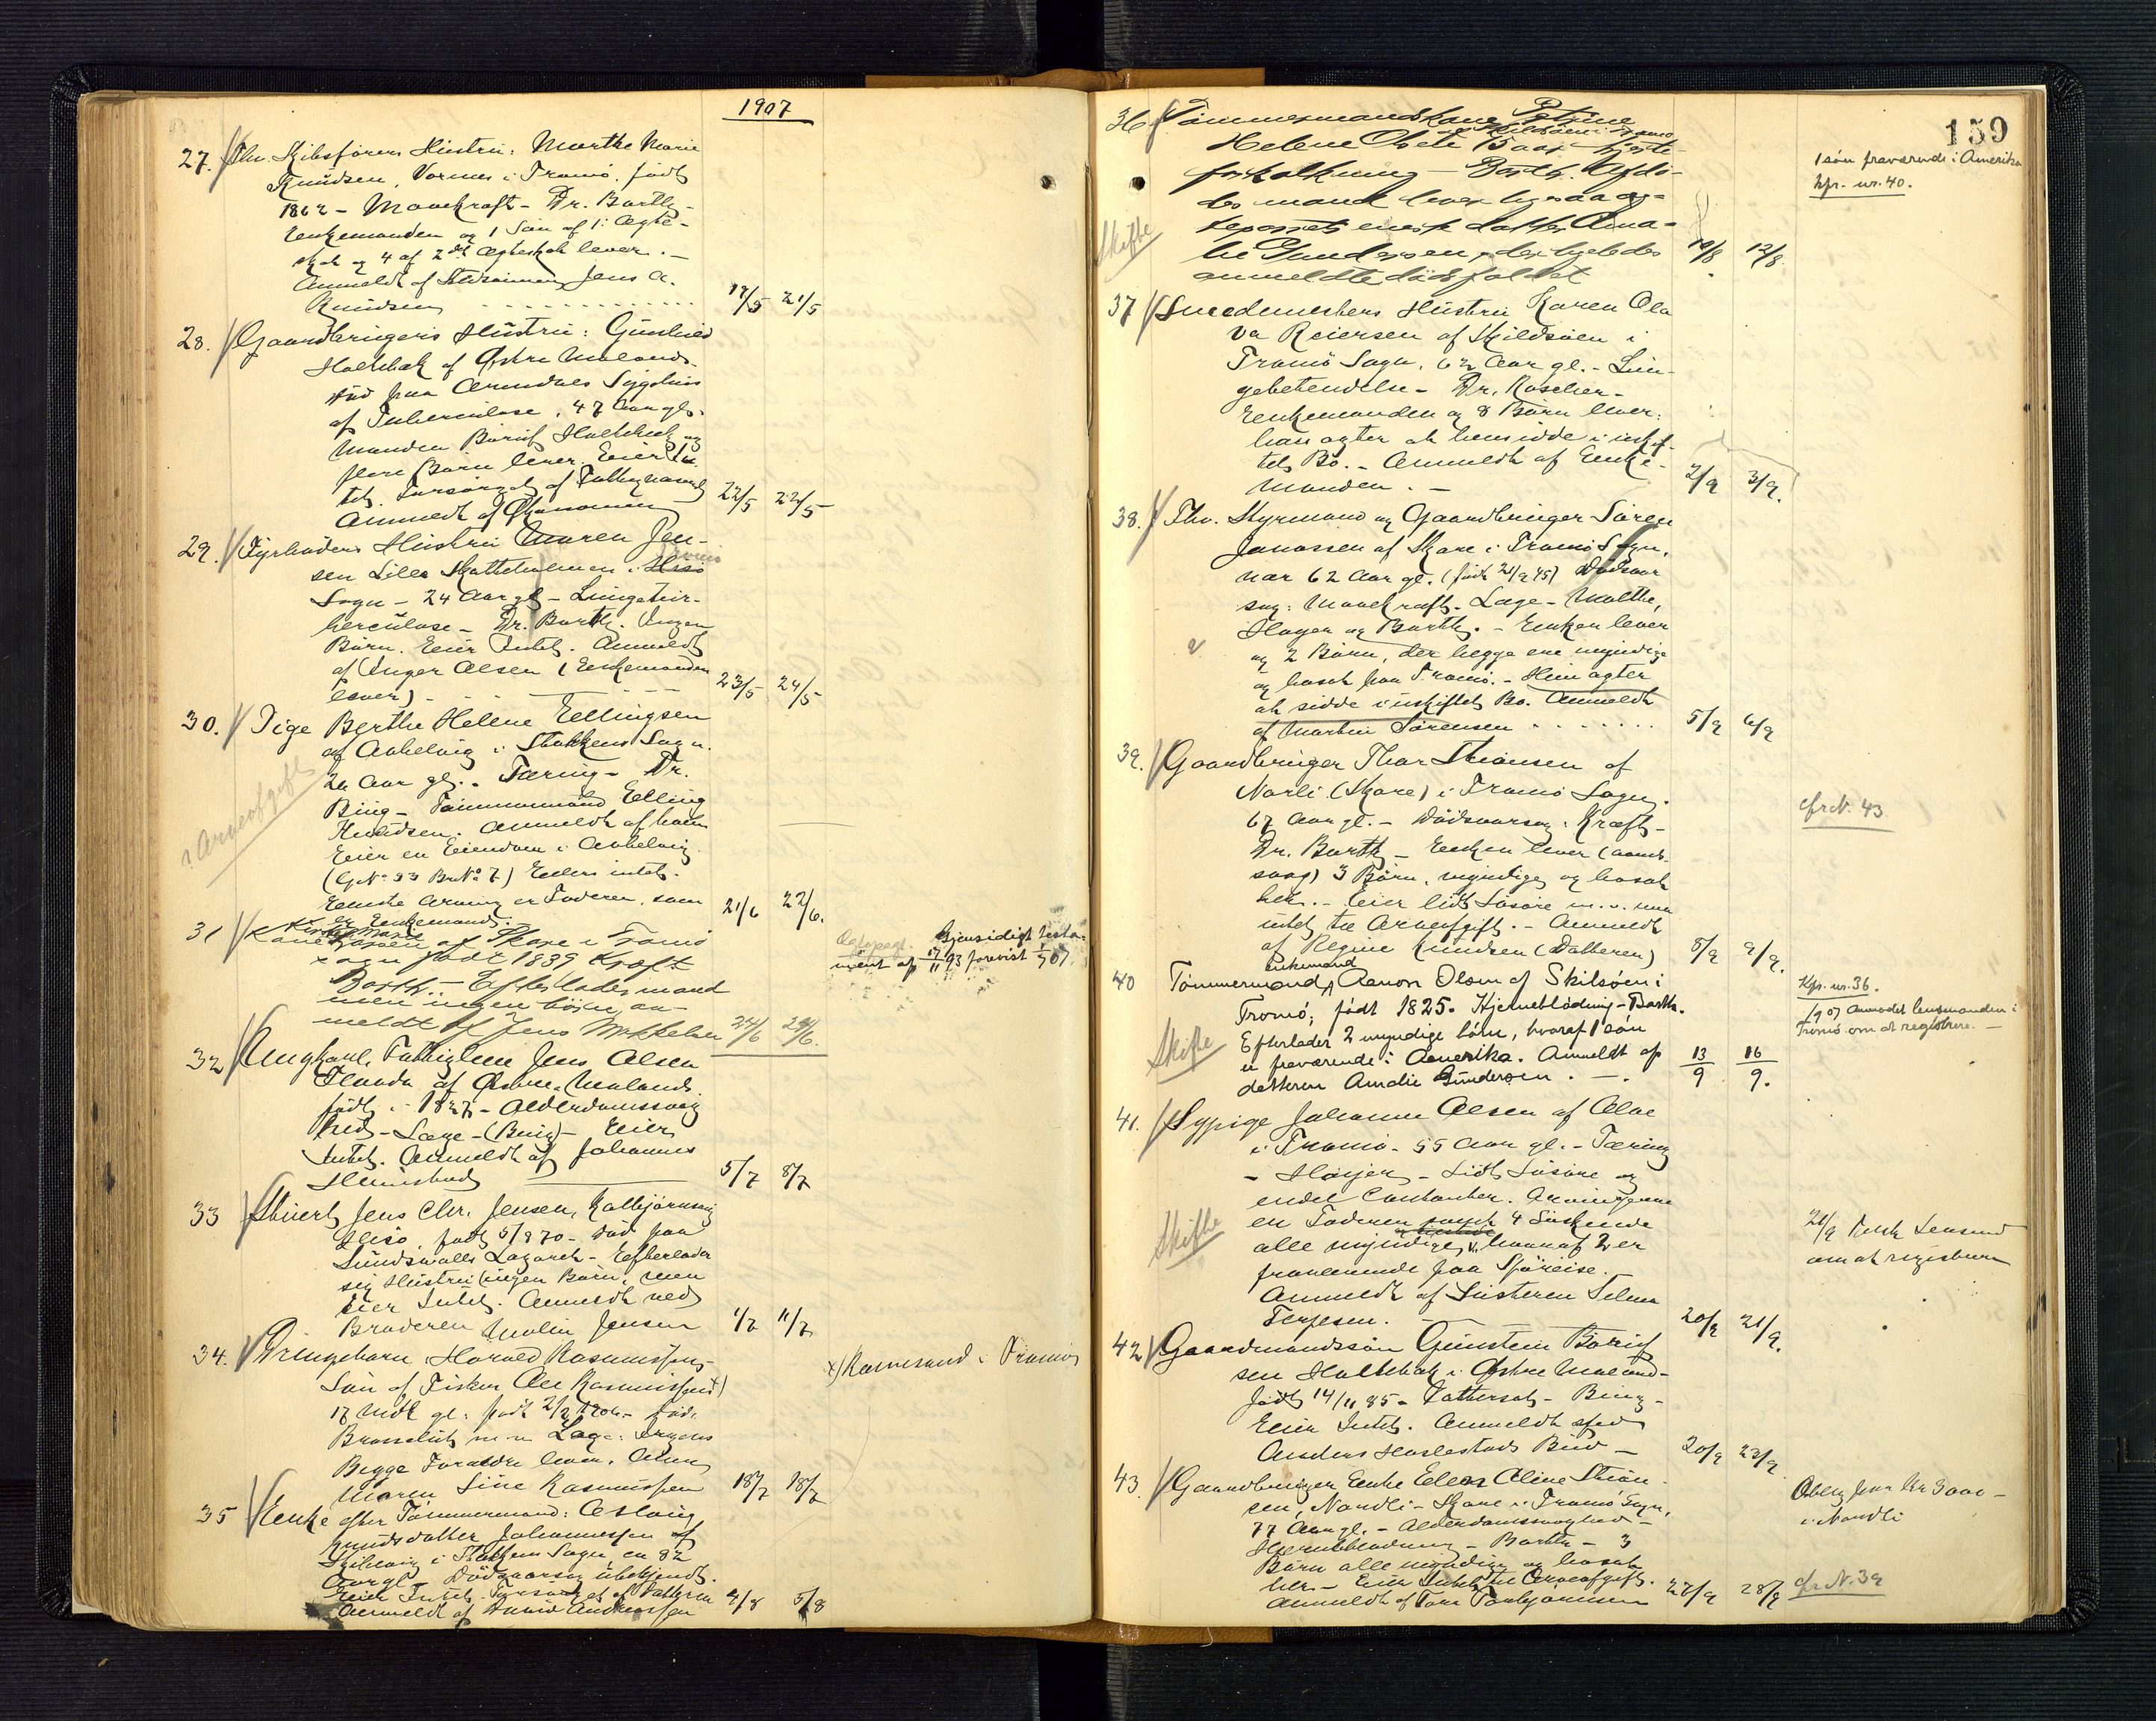 1907
27. Fhv. Skibsførers Hustru: Marthe Marie
Knudsen, Vormes i Tromø, født
1862 - Mavekraft - Dr. Barth -
Enkemanden og 1 Søn af 1: Ægte-
skab og 4 af 2det Ægteskab lever. -
Anmeldt af Jens A.
Knudsen 17/5 21/5
28. Gaardbrugers Hustru: Gunhild
Holtebak af Østre Molands
død paa Arendals Sygehus
af Tuberculose, 47 Aar gl.
Manden Børuf Holtebak og
flere Børn lever. Eier In-
tet. Forsørget af Fattigvæsenet
Anmeldt af Økonomen 22/5 22/5
29. Fyrbøders Hustru Maren Jen-
sen Lille Skottholmen i Hisø Tromø
Sogn - 24 Aar gl - Lungetu-
berculose - Dr. Barth. Ingen
Børn. Eier Intet. Anmeldt
af Inger Olsen (Enkemanden
lever) - 23/5 24/5
30. Pige Berthe Helene Ellingsen
af Avbelvig i Stokken Sogn.
2 Aar gl. - Tæring - Dr.
Bing - Tømmermand Elling
Knudsen. Anmeldt af ham
Eier en Eiendom i Avbelvig
(G.No 53 Br.No 7) Ellers intet.
Eneste Arving er Faderen, som
er Enkemand. 21/6 22/6.
Arveafgift
31 Kone Kirsten Marie
af Skare i Tromø
sogn født 1839 Kræft
Barth - Efterlader mand
men ingen børn, an-
meldt af Jens Mikkelsen 24/6 24/6.
Ægtepagt. Gjensidigt testa-
ment af 17/11 93 forevist 1/7 07.
32 Ungkarl, Fattiglem Jens Olsen
Flauda af Østre Molands
født i 1827 - Alderdomssvag-
hed - Læge - (Bing) - Eier
Intet. Anmeldt af Johannes
5/7 8/7
33 Stuert Jens Chr. Jensen, Kolbjørnsvig
Hisø, født 5/8 70 - død paa
Sundsvalls Lazaret - Efterlader
sig Hustru (ingen Børn, men
Eier Intet. Anmeldt ved
Broderen Molin Jensen 1/7 11/7
34. Drengebarn Harald Rasmussen,
Søn af Fisker Ole Rasmussen x)
17 Mdr gl: født 2/2 1906 - død.
Læge:
Begge Forældre lever. Anm.
Maren Sine Rasmussen 18/7 18/7
x) Rasmesund i Tromø
35 Enke efter Tømmermand: Aslaug
Gundsdatter Johannessen af
i Stokken Sogn, ca 82
Aar gl. Dødsaarsag ubekjendt.
Eier Intet. Forsørget af Datteren
Anmeldt af David Andreassen 4/8 5/8
159
36 Tømmermandskone Petrine
Helene Olsen Skilsøen i Tromø
- Hjerte-
forkalkning - Barth. Afdø-
des mand lever ligesaa æg-
teparrets eneste datter Ama-
lie Gundersen, der ligeledes
anmeldte dødsfaldet 10/8 12/8
Skifte
1 søn fraværende i Amerika
kfr. nr. 40.
37 Smedemesters Hustru Karen Ola
va Reiersen af Skilsøen i
Tromø Sogn. 62 Aar gl. - Lun-
gebetendelse - Dr. Roscher -
Enkemanden og 8 Børn lever:
han agter at hensidde i uskif-
tet Bo. - Anmeldt af Enke-
manden. - 2/9 3/9.
38. Fhv. Styrmand og Gaardbruger Søren
Jonassen af Skare i Tromø Sogn,
var 62 Aar gl. (født 21/2 45) Dødsaar
sag: Mavekræft. Læge - Molthe,
Hagen og Barth. - Enken lever
og 2 Børn, der begge ere myndige
og bosat paa Tromø. - Hun agter
at sidde i uskiftet Bo. Anmeldt
af Martin Sørensen 5/9 6/9
39. Gaardbruger Thor Stiansen af
Narli (Skare) i Tromø Sogn.
67 Aar gl. - Dødsaarsag: Kræft -
Dr. Barth - Enken lever
3 Børn, myndige og bosat
her. - Eier lidt Løsøre m.v. men
intet til Arveafgift. - Anmeldt
af Regine Knudsen (Datteren) 8/9 9/9.
cfr. N. 43
40 Tømmermand, enkemand Aanon Olsen af Skilsøen i
Tromø, født 1825. Hjerneblødning - Barth.
Efterlader 2 myndige børn, hvoraf 1 søn
er fraværende i Amerika. Anmeldt af
datteren Amalie Gundersen. -. 13/9 16/9.
Skifte
Kfr. nr. 36.
07 Anmodet lensmanden i
Tromø om at registrere. -
41. Sypige Johanne Olsen af Alve
i Tromø. 55 Aar gl. - Tæring
- Høyer - Lidt Løsøre og
endel Contanter. Arvingerne
er Faderen samt 4 Søskende
alle myndige, hvoraf 2 er
fraværende paa Sjøreise. -
Anmeldt af Søsteren Selma
Terjesen. 20/9 21/9.
Skifte
21/9 Lensmd
om at registrere
42 Gaardmandssøn Gunstein Børuf
sen Holtebak i Østre Moland -
født 14/11 85 - Vattersot - Bing -
Eier Intet. Anmeldt ved
Anders Harlestads Bud - 20/9 23/9
43. Gaardbruger Enke Ellen Oline Stian-
sen, Narli - Skare i Tromø Sogn,
77 Aar gl. - Alderdomssvaghed -
Hjerneblødning - Barth - 3
Børn alle myndige og bosat
her - Eier Intet til Arveafgift.
Anmeldt af Tore Torbjørnsen 27/9 28/9
Oblig. paa Kr 3000 -
i Nardli
cfr. N. 39